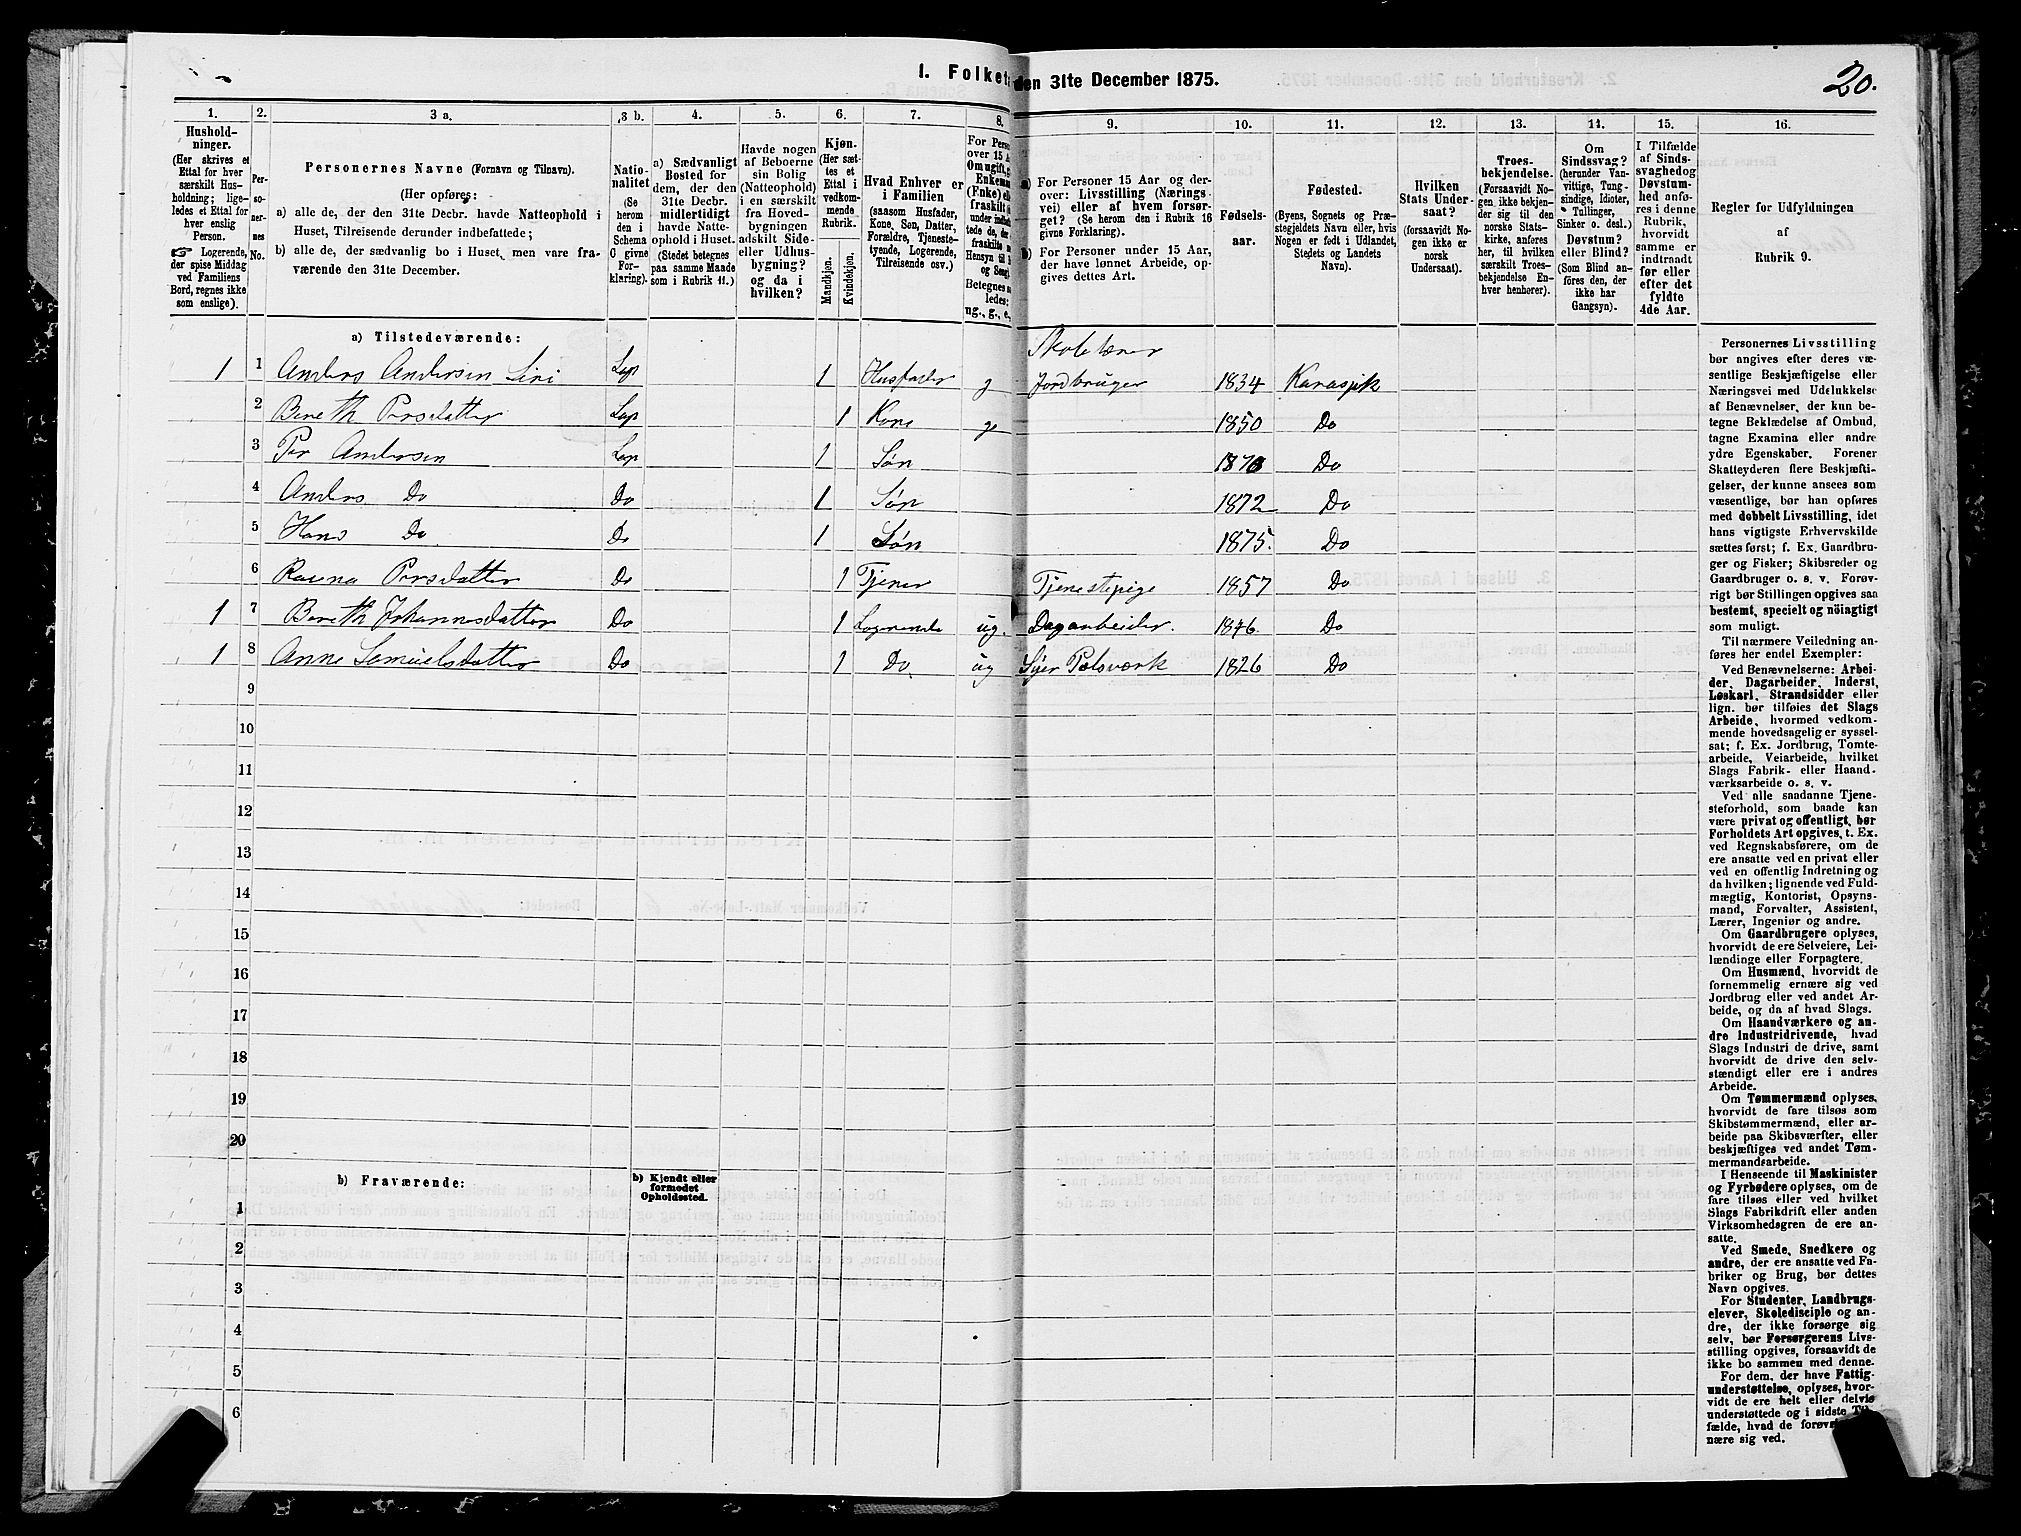 1. Folket
den 31te December 1875.
20.
1.
2.
3 a.
3 b.
4.
5.
6.
7.
8.
9.
10.
11.
12.
13.
14.
15.
16.
Hushold-
ninger.
(Her skrives et
Ettal for hver
særskilt Hus-
holdning; lige-
ledes et Ettal for
hver enslig
Person.
☞ Logerende,
der spise Middag
ved Familiens
Bord, regnes ikke
som enslige).
Per-
so-
ner-
nes
No.
Personernes Navne (Fornavn og Tilnavn).
(Her opføres:
a) alle de, der den 31te Decbr. havde Natteophold i
Huset, Tilreisende derunder indbefattede;
b) alle de, der sædvanlig bo i Huset, men vare fra-
værende den 31te December.
Natio-
nalitet
(Se
herom
den i
Schema
C givne
For-
klaring).
a) Sædvanligt
Bosted for
dem, der den
31te Decbr.
midlertidigt
havde Natte-
ophold i Huset.
(Stedet betegnes
paa samme Maade
som i Rubrik 11.)
Havde nogen
af Beboerne
sin Bolig
(Natteophold)
i en særskilt
fra Hoved-
bygningen
adskilt Side-
eller Udhus-
bygning?
og da i
hvilken?
Kjøn.
(Her sæt-
tes et
Ettal i
vedkom-
mende
Rubrik.
Mandkjøn.
Kvindekjøn.
Hvad Enhver er
i Familien
(saasom Husfader,
Kone, Søn, Datter,
Forældre, Tjeneste-
tyende, Logerende,
Tilreisende osv.)
For Pers
over 15 A
Om ugift, g
Enkem
(Enke) el
fraskilt
under indb
tede de, d
fraskilte
Hensyn til
og Seng
Betegnes s
ledes:
ug., g., e.,
a) For Personer 15 Aar og der-
over: Livsstilling (Nærings-
vei) eller af hvem forsør-
get? (Se herom den i Rubrik 16
givne Forklaring).
b) For Personer under 15 Aar,
der have lønnet Arbeide, op-
gives dettes Art.
Fødsels-
aar.
Fødested.
(Byens, Sognets og Præ-
stegjeldets Navn eller, hvis
Nogen er født i Udlandet,
Stedets og Landets
Navn).
Hvilken
Stats Under-
saat?
(forsaavidt No-
gen ikke er
norsk
Undersaat).
Troes-
bekjendelse.
(Forsaavidt No-
gen ikke bekjen-
der sig til den
norske Stats-
kirke, anføres
her, til hvilken
særskilt Troes-
bekjendelse En-
hver henhører).
Om
Sindssvag?
(herunder Van-
vittige, Tung-
sindige, Idioter,
Tullinger,
Sinker o. desl.)
Døvstum?
eller Blind?
(Som Blind an-
føres den, der
ikke har
Gangsyn).
I Tilfælde
af Sinds-
svaghed og
Døvstum-
hed anfø-
res i denne
Rubrik,
hvorvidt
samme er
indtraadt
før eller
efter det
fyldte
4de Aar.
Regler for Udfyldningen
af
Rubrik 9.
a) Tilstedeværende:
Skolelærer
1 1 Anders Andersen Siri Lap 1 Husfader g Jordbruger 1834 Karasjok
2 Bereth Persdatter Lap 1 Kone g 1850 Do
3 Per Andersen Lap 1 Søn 1870 Do
4 Anders Do Do 1 Søn 1872 Do
5 Hans Do Do 1 Søn 1875. Do
6 Rauna Persdatter Do 1 Tjener Tjenestepige 1857 Do
1 7 Bereth Johannesdatter Do 1 Logerende ug. Dagarbeider. 1846 Do
1 8 Anne Samuelsdatter Do 1 Do ug Syer Pelsværk 1826 Do
9
10
11
12
13
14
15
16
17
18
19
20
b) Fraværende:
b) Kjendt eller
formodet
Opholdssted.
1
2
3
4
5
6
Personernes Livsstilling
bør angives efter deres væ-
sentlige Beskjæftigelse eller
Næringsvei med Udelukkelse
af Benævnelser, der kun be-
tegne Beklædelse af Ombud,
tagne Examina eller andre
ydre Egenskaber. Forener
Skatteyderen flere Beskjæfti-
gelser, der kunne ansees som
væsentlige, bør han opføres
med dobbelt Livsstilling, idet
hans vigtigste Erhvervskilde
sættes først; f. Ex. Gaardbru-
ger og Fisker; Skibsreder og
Gaardbruger o. s. v. Forøv-
rigt bør Stillingen opgives saa
bestemt, specielt og nøiagtigt
som muligt.
Til nærmere Veiledning an-
føres her endel Exempler:
Ved Benævnelserne: Arbei-
der, Dagarbeider, Inderst,
Løskarl, Strandsidder eller
lign. bør tilføies det Slags
Arbeide, hvormed vedkom-
mende hovedsagelig er syssel-
sat; f. Ex. Jordbrug, Tomte-
arbeide, Veiarbeide, hvilket
Slags Fabrik- eller Haand-
værksarbeide o. s. v.
Ved alle saadanne Tjene-
steforhold, som baade kan
være privat og offentligt, bør
Forholdets Art opgives, t. Ex.
ved Regnskabsførere, om de
ere ansatte ved en privat eller
ved en offentlig Indretning og
da hvilken; lignende ved Fuld-
mægtig, Kontorist, Opsyns-
mand, Forvalter, Assistent,
Lærer, Ingeniør og andre.
Om Gaardbrugere oplyses,
hvorvidt de ere Selveiere, Lei-
lændinge eller Forpagtere.
Om Husmænd, hvorvidt de
fornemmelig ernære sig ved
Jordbrug eller ved andet Ar-
beide, og da af hvad Slags.
Om Haandværkere og an-
dre Industridrivende, hvad
Slags Industri de drive, samt
hvorvidt de drive den selv-
stændigt eller ere i andres
Arbeide.
Om Tømmermænd oplyses,
hvorvidt de fare tilsøs som
Skibstømmermænd, eller ar-
beide paa Skibsværfter, eller
beskjæftiges ved andet Tøm-
mermandsarbeide.
I Henseende til Maskinister
og Fyrbødere oplyses, om de
fare tilsøs eller ved hvilket
Slags Fabrikdrift eller anden
Virksomhedsgren de ere an-
satte.
Ved Smede, Snedkere og
andre, der ere ansatte ved Fa-
briker og Brug, bør dettes
Navn opgives.
For Studenter, Landbrugs-
elever, Skoledisciple og an-
dre, der ikke forsørge sig
selv, bør Forsørgerens Livs-
stilling opgives, forsaavidt de
ikke bo sammen med denne.
For dem, der have Fattig-
understøttelse, oplyses, hvor-
vidt de ere helt eller delvis
understøttede og i sidste Til-
fælde, hvad de forøv
nære sig ved.